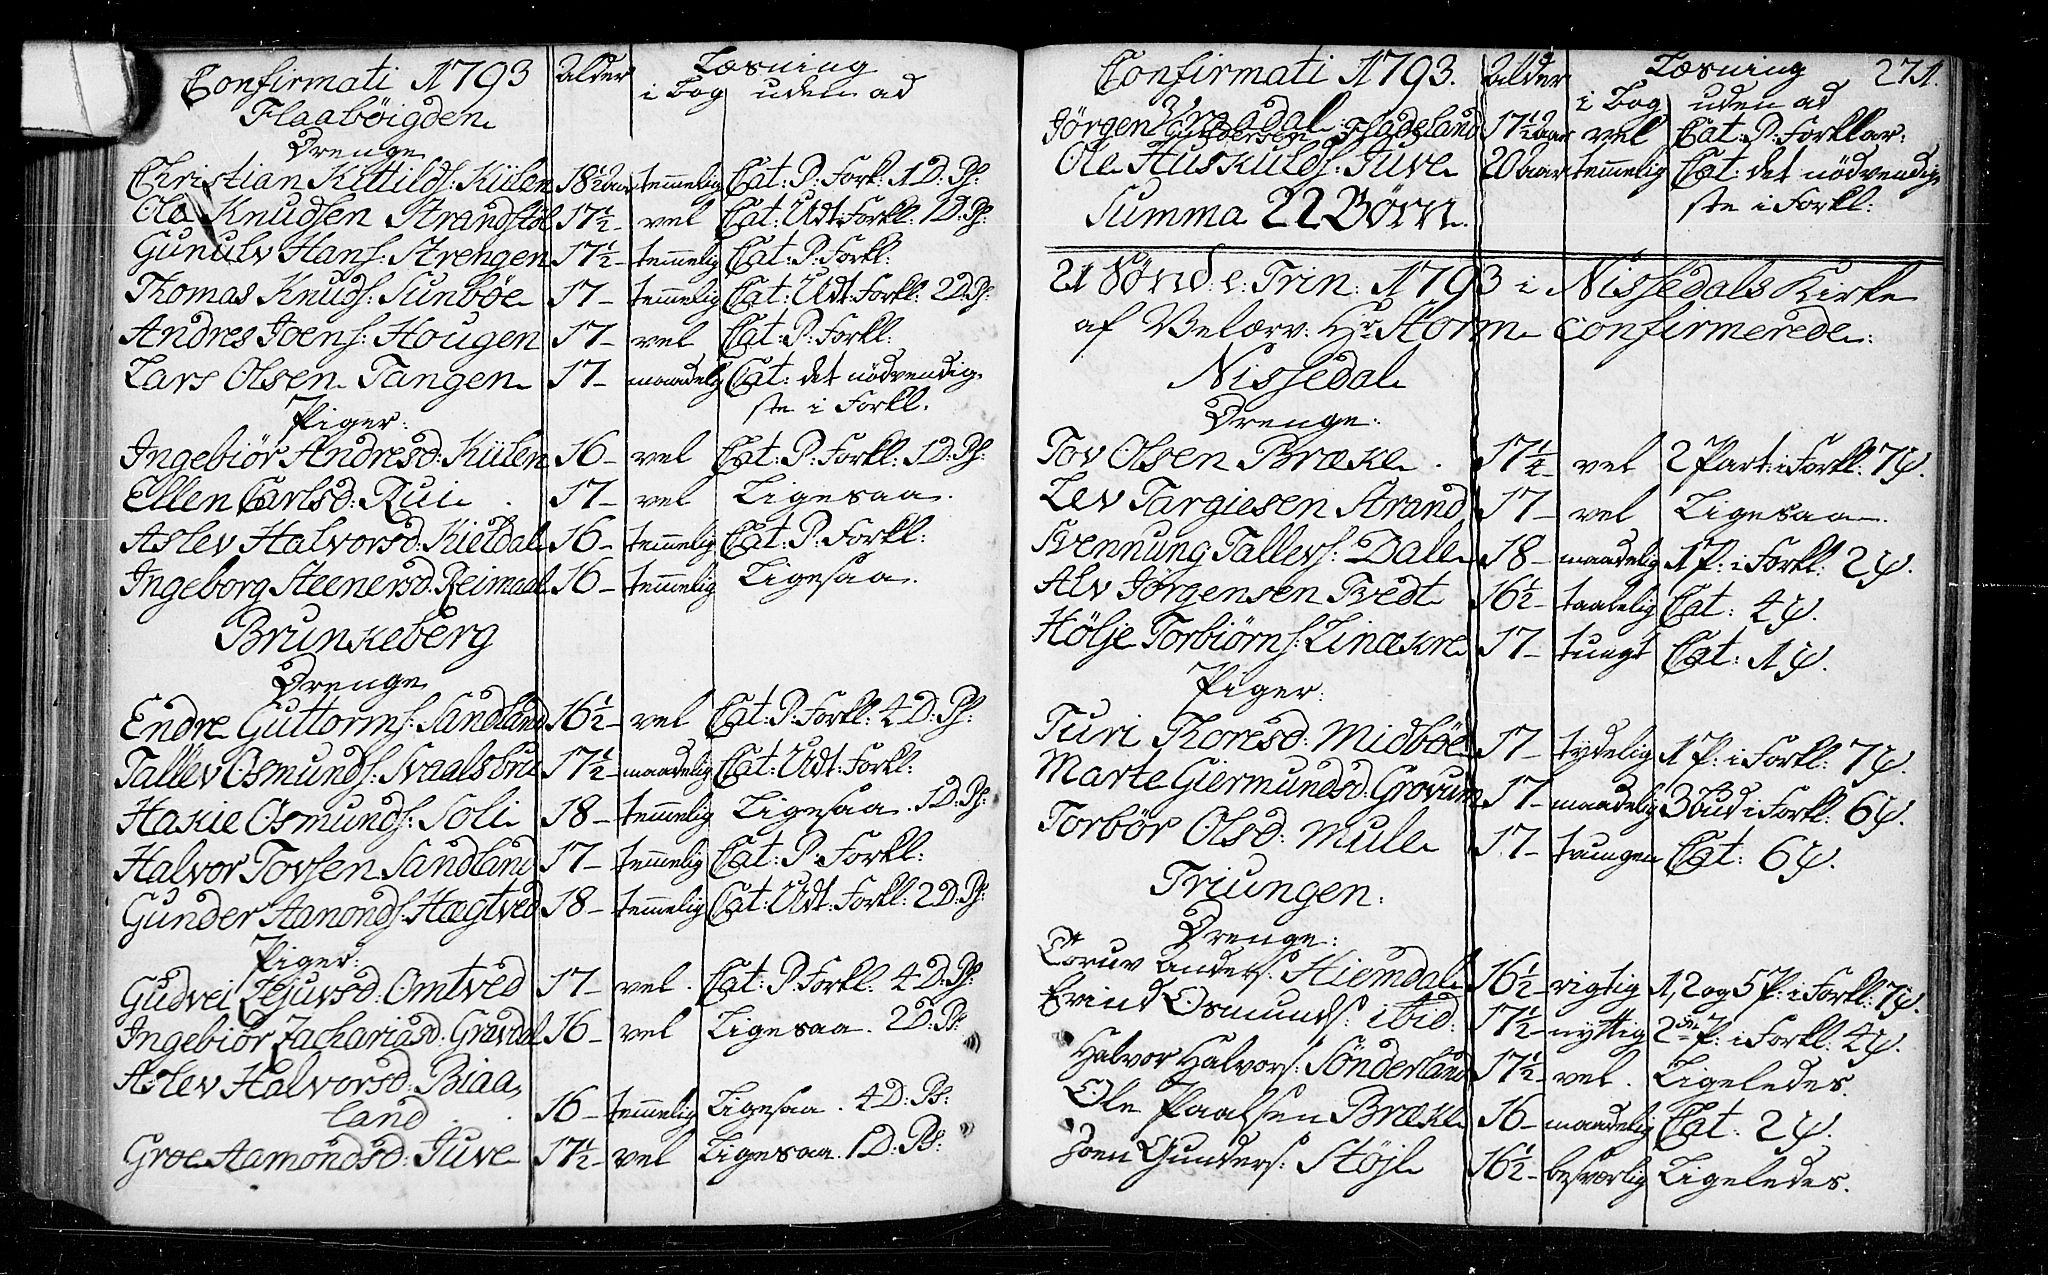 Confirmati 1793 Alder Læsning
i Bog uden ad
Flaabøigden
Drenge
Christian Kittilds: Kiilen 18½ aar temmelig Cat: P: Forkl: 1 D: Ps:
Ola Knudsen Strandstøl 17½ – vel Cat: Udt: Forkl: 1 D: Ps:
Gunulv Hans: Strengen 17½ – temmelig Cat: P: Forkl:
Thomas Knuds: Sunbøe 17 – temmelig Cat: Udt: Forkl: 2 D: Ps:
Andres Joens: Hougen 17 – vel Cat: P: Forkl:
Lars Olsen Tangen 17 – maadelig Cat: det nödvendig
ste i Forkl.
Piger:
Ingebiör Andresd: Kiilen 16 – vel Cat: P: Forkl: 1 D: Ps:
Ellen Carlsd: Rui 17 – vel Ligesaa.
Aslev Halvorsd: Kieldal 16 – temmelig Cat: P: Forkl:
Ingeborg Steenersd: Reimaal 16 – temmelig Ligesaa.
Brunkeberg
Drenge
Endre Guttorms: Sandland 16½ – vel Cat: P: Forkl: 4 D: Ps:
Tallev Osmunds: Svaalsbru 17½ – maadelig Cat: Udt: Forkl:
Hakie Osmunds: Soli 18 – temmelig Ligesaa. 1 D: Ps:
Halvor Tovsen Sandland 17 – temmelig Cat: P: Forkl:
Gunder Aamonds: Hægtved 18 – temmelig Cat: Udt: Forkl: 2 D: Ps:
Piger:
Gudvei Lejuvsd: Omtved 17 – vel. Cat: P: Forkl: 4 D: Ps:
Ingebiör Zachariasd: Gravdal 16 – vel Ligesaa. 2 D: Ps:
Aslev Halvorsd: Biaa,
land 16 – temmelig Ligesaa. 4 D: Ps:
Groe Aamondsd: Juve 17½ – vel Ligesaa. 1 D: Ps:
Confirmati 1793. Alder Læsning 271.
i Bog uden ad
Vraadal
Jörgen Gundersen Fladeland 17½ aar vel Cat: P: Forklar:
Ole Huskulds: Juve 20 aar temmelig Cat: det nödvendig
ste i Forkl:
Summa 22 Börn.
21 Sönd: e: Trin: 1793 i Nissedals Kirke
af Velærv: Hr Storm confirmerede:
Nissedal
Drenge:
Tov Olsen Bræke. 17¼ – vel 2 Part: i Forkl: 7 ψ.
Lev Targiesen Strand 17 – vel Ligesaa.
Svennung Tallevs: Dale 18 – maadelig 1 P: i Forkl: 2 ψ.
Alv Jörgensen Tvedt 16½ – taalelig Cat: 4 ψ.
Hölje Torbiörns: Linækre 17 – tungt Cat: 1 ψ.
Piger:
Turi Thoresd: Midböe 17 – tydelig 1 P: i Forkl: 7 ψ.
Marte Giermundsd: Grovum 17 – maadelig 3 Bud i Forkl: 6 ψ.
Torbör Olsd: Mule 17 – tvungen Cat: 6 ψ.
Triungen.
Drenge:
Toruv Anders: Hiemdal 16½ – rigtig 1, 2 og 5 P: i Forkl: 7 ψ.
Evind Osmunds: ibid: 17½ – nyttig 2den P: i Forkl: 4 ψ.
Halvor Halvors: Sönderland 17½ – vel. Ligeledes.
Ole Paalsen Bræke 16 – maadelig Cat: 2 ψ.
Joen Gunders: Støjl 16½ – besværlig Ligeledes.